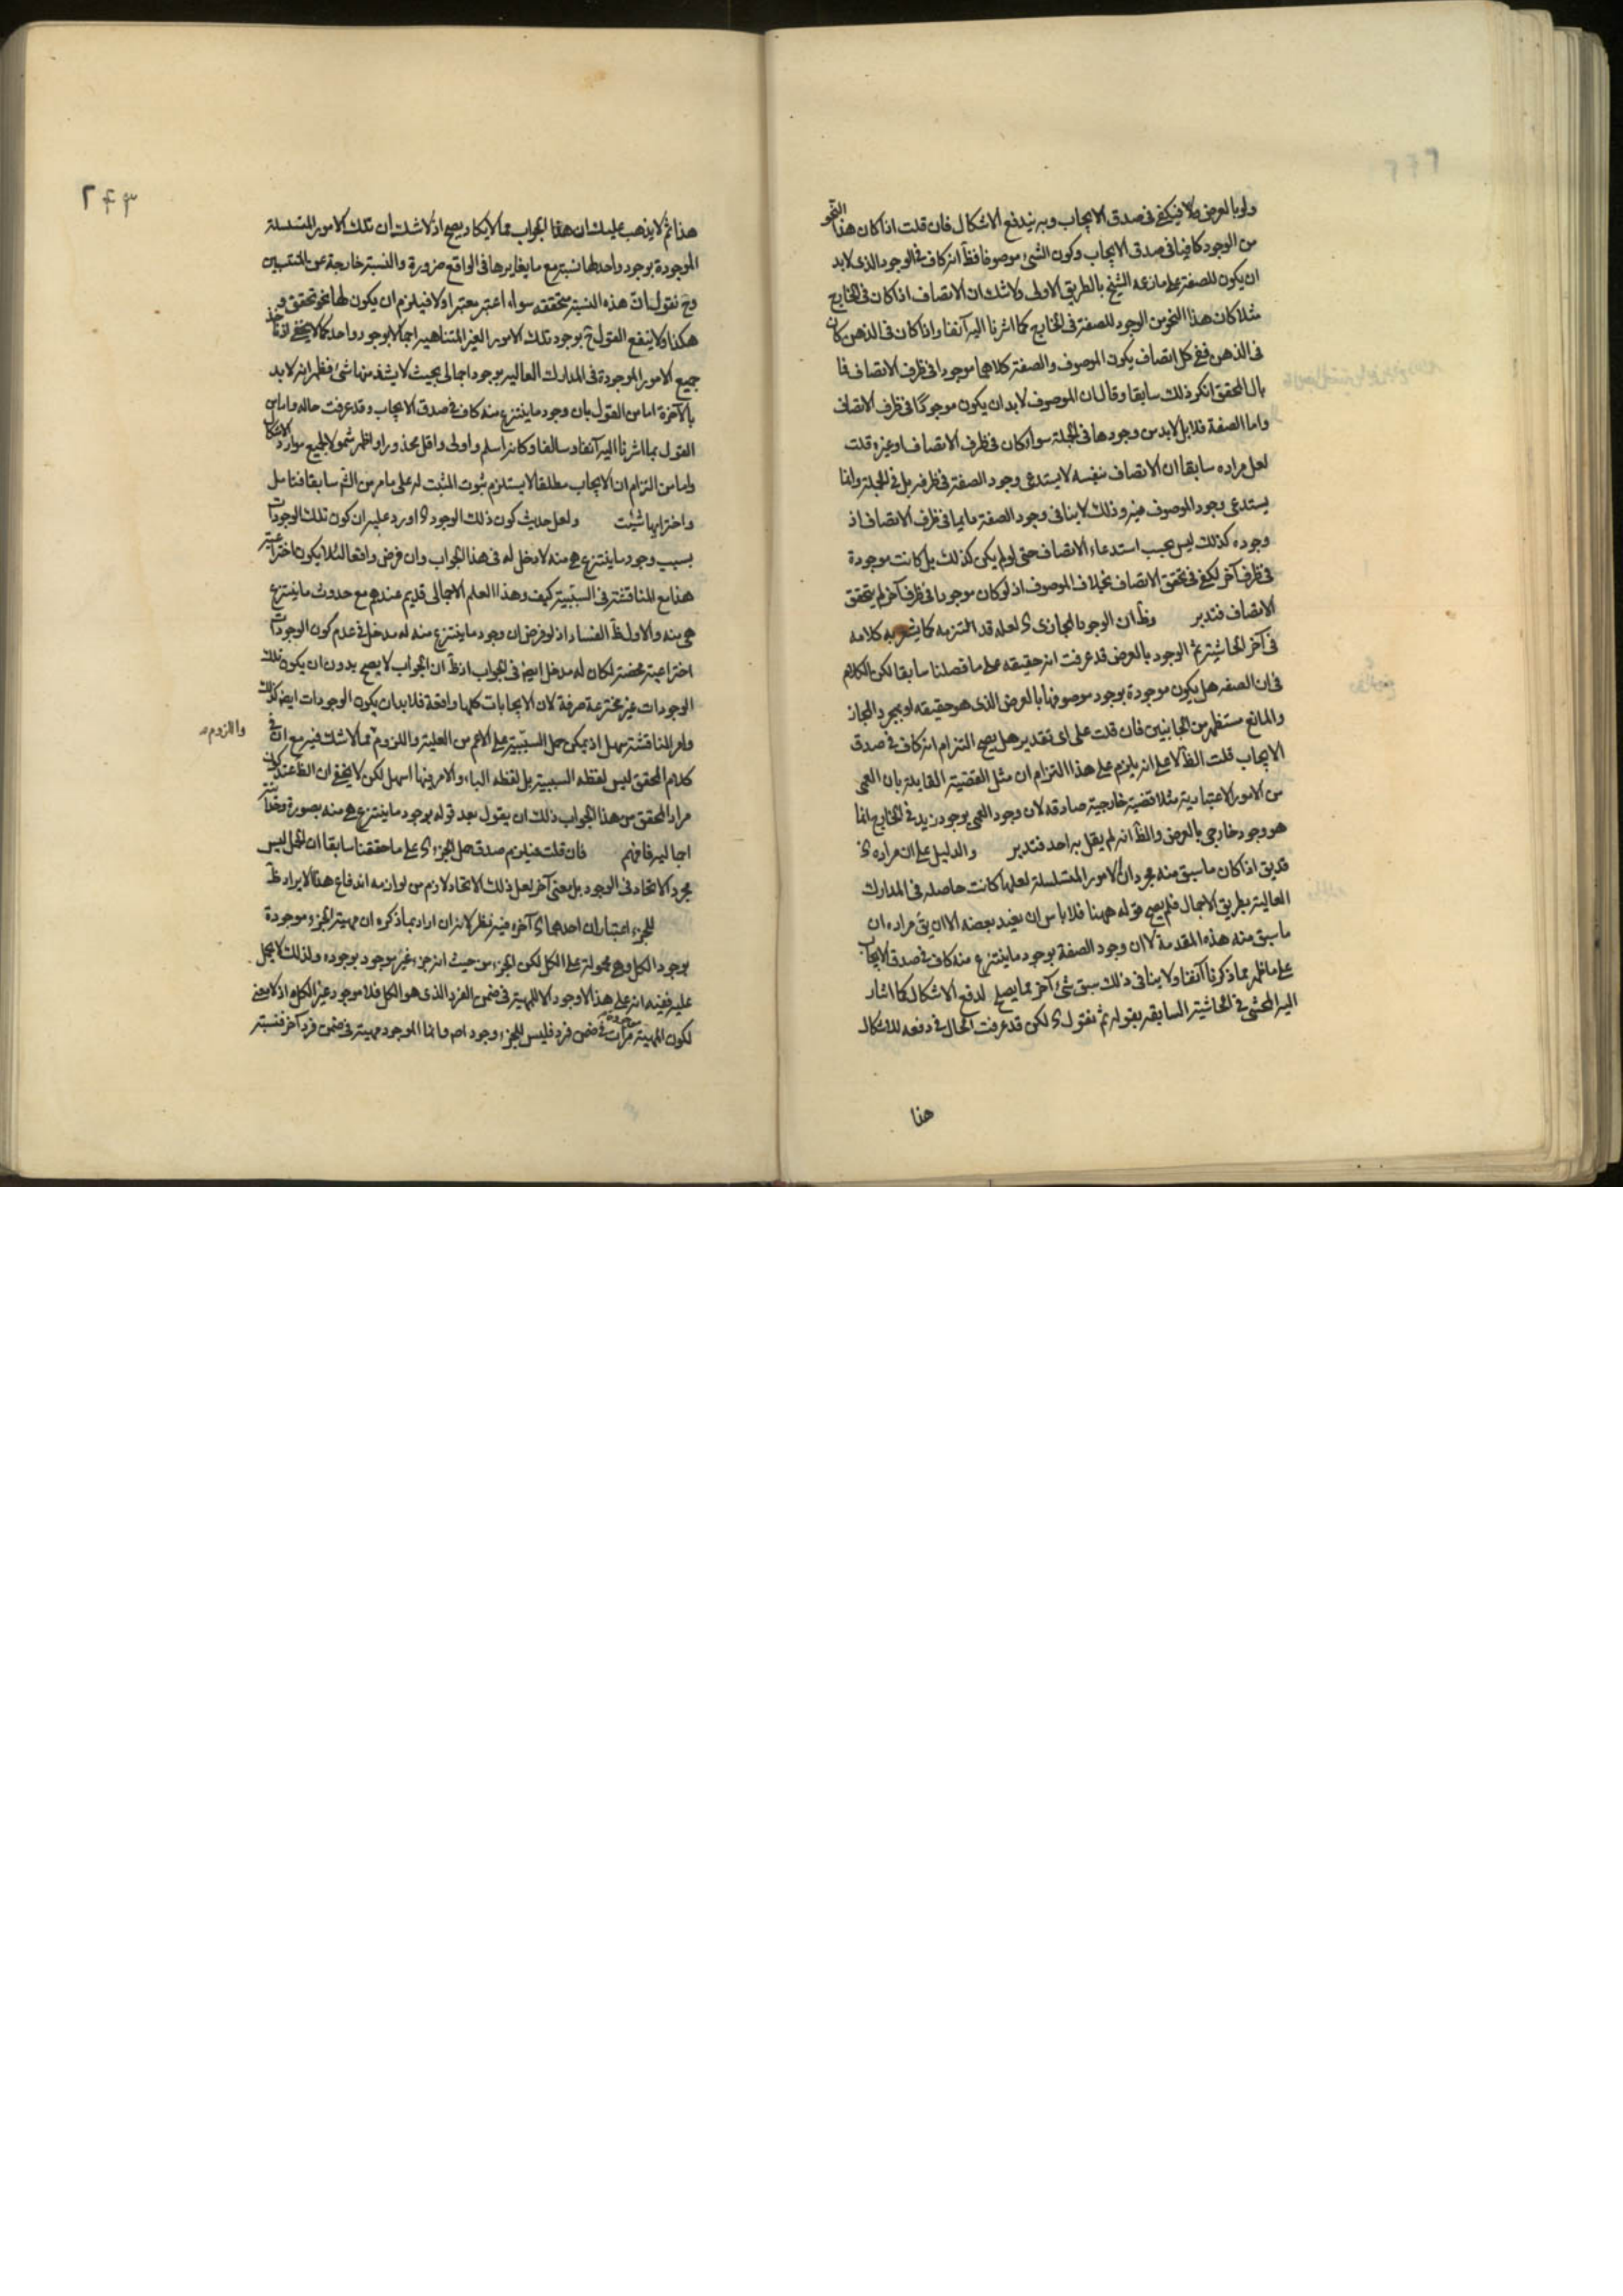 ولو بالعرض والا فيكفي في صدق الايجاب وبه يندفع الاشكال فان قلت اذا كان هذا النحو
من الوجود كافيا في صدق الايجاب وكون الشئ موصوفا فظ انه كاف في الوجود الذي لابد
ان يكون للصفة على ما زعمه الشيخ بالطريق الاولى ولا شك ان الاتصاف اذا كان في الخارج
مثلا كان هذا النحو من الوجود للصفة في الخارج كما اشرنا اليه آنفا واذا كان في الذهن كان
في الذهن ففي كل اتصاف يكون الموصوف والصفة كلاهما موجودا في ظرف الاتصاف فما
بال المحقق انكر ذلك سابقا وقال ان الموصوف لابد ان يكون موجودا في ظرف الاتصاف
واما الصفة فلا بل لابد من وجودها في الجملة سواء كان في ظرف الاتصاف او غيره قلت
لعل مراده سابقا ان الاتصاف نفسه لا يستدعي وجود الصفة في ظرفه بل في الجملة وانما
يستدعي وجود الموصوف فيه وذلك لا ينافي وجود الصفة دايما في ظرف الاتصاف اذ
وجوده كذلك ليس بحسب استدعاء الاتصاف حتى لو لم يكن كذلك بل كانت موجودة
في ظرف آخر لكفي في تحقق الاتصاف بخلاف الموصوف اذ لو كان موجودا في ظرف آخر لم يتحقق
الاتصاف فتدبر وظ ان الوجود المجازى ى لعله قد التزمه كما يشعر به كلامه
في آخر الحاشية ثم الوجود بالعرض قد عرفت انه حقيقه على ما فصلنا سابقا لكن الكلام
في ان الصفه هل يكون موجودة بوجود موصوفها بالعرض الذى هو حقيقه او بمجرد المجاز
والمانع مستظهر من الجانبين فان قلت على اى تقدير هل يصح التزام انه كاف في صدق
الايجاب قلت الظ لا على انه يلزم على هذا التزام ان مثل القضية القايلة بان العمى
من الامور الاعتبارية مثلا قضية خارجية صادقه لان وجود العمى بوجود زيد في الخارج انما
هو وجود خارجي بالعرض والظ انه لم يقل به احد فتدبر والدليل على ان مراده ى
قد يق اذا كان ما سبق منه مجرد ان الامور المتسلسلة لعلها كانت حاصله في المدارك
العالية بطريق الاجمال فلم يصح قوله ههنا فلا باس ان يفيد بعضه الا ان يق مراده ان
ما سبق منه هذه المقدمة لا ان وجود الصفة بوجود ما ينتزع منه كاف في صدق الايجاب
على ما ظهر مما ذكرنا آنفا ولا ينافي ذلك سبق شئ آخر مما يصلح لدفع الاشكال كما اشار
اليه المحشي في الحاشية السابقه بقوله ثم نقول ى لكن قد عرفت الحال في دفعه للاشكال
هذا
٢٤٣
هذا ثم لا يذهب عليك ان هذا الجواب مما لا يكاد يصح اذ لا شك ان تلك الامور المتسلسلة
الموجودة بوجود واحد لها نسبة مع ما يغايرها في الواقع ضرورة والنسبة خارجة عن المنتسبين
وح نقول ان هذه النسبة متحققه سواء اعتبر معتبر او لا فيلزم ان يكون لها نحو تحقق و
هكذا ولا ينفع القول ح بوجود تلك الامور الغير المتناهيه اجمالا بوجود واحد كما لا يخفي اذ نأخذ
جميع الامور الموجودة في المدارك العاليه بوجود اجمالي بحيث لا يشذ منها شئ فظهر انه لابد
بالآخرة اما من القول بان وجود ما ينتزع منه كاف في صدق الايجاب وقد عرفت حاله واما من
القول بما اشرنا اليه آنفا وسالفا وكانه اسلم واولى واقل محذورا واظهر شمولا لجميع موارد الاشكال
واما من التزام ان الايجاب مطلقا لا يستلزم ثبوت المثبت له على ما مر من الشم سابقا فتامل
واختر ايها شئت ولعل حديث كون ذلك الوجود ى اورد عليه ان كون تلك الوجودات
بسبب وجود ما ينتزع هي منه لا دخل له في هذا الجواب وان فرض واقعا لئلا يكون اختراعية
هذا مع المناقشة في السببية كيف وهذا العلم الاجمالي قديم عندهم مع حدوث ما ينتزع
هي منه والاول ظ الفساد اذ لو فرض ان وجود ما ينتزع منه له مدخل في عدم كون الوجودات
اختراعية محضة لكان له مدخل ايضا في الجواب اذ ظ ان الجواب لا يصح بدون ان يكون تلك
الوجودات غير مخترعة صرفة لان الايجابات كلها واقعة فلا بد ان يكون الوجودات ايضا كذلك
وامر المناقشة سهل اذ يمكن حمل السببية على الاعم من العلية واللزوم مما لا شك فيه مع ان في
واللزوم
كلام المحقق ليس لفظه السببية بل لفظه الباء والامر فيها اسهل لكن لا يخفي ان الظ عند كان
مراد المحقق من هذا الجواب ذلك ان يقول بعد قوله بوجود ما ينتزع هي منه بصورة وحدانية
اجماليه فافهم فان قلت فيلزم صدق حمل الجزء ى على ما حققنا سابقا ان الحمل ليس
مجرد الاتحاد في الوجود بل معنى آخر لعل ذلك الاتحاد لازم من لوازمه اندفاع هذا الايراد ظ
للجزء اعتباران احدهما ى آخره فيه نظر لانه ان اراد بما ذكره ان مهية الجزء موجودة
بوجود الكل وهي محمولة على الكل لكن الجزء من حيث انه جزء غير موجود بوجوده ولذلك لا يحمل
عليه ففيه انه على هذا لا وجود الا للمهية في ضمن الفرد الذى هو الكل فلا موجود غير الكل اذ لا معنى
لكون المهية موجودة مرات في ضمن فرد فليس للجزء وجود اصلا وانما الموجود مهية في ضمن فرد آخر فنسبة